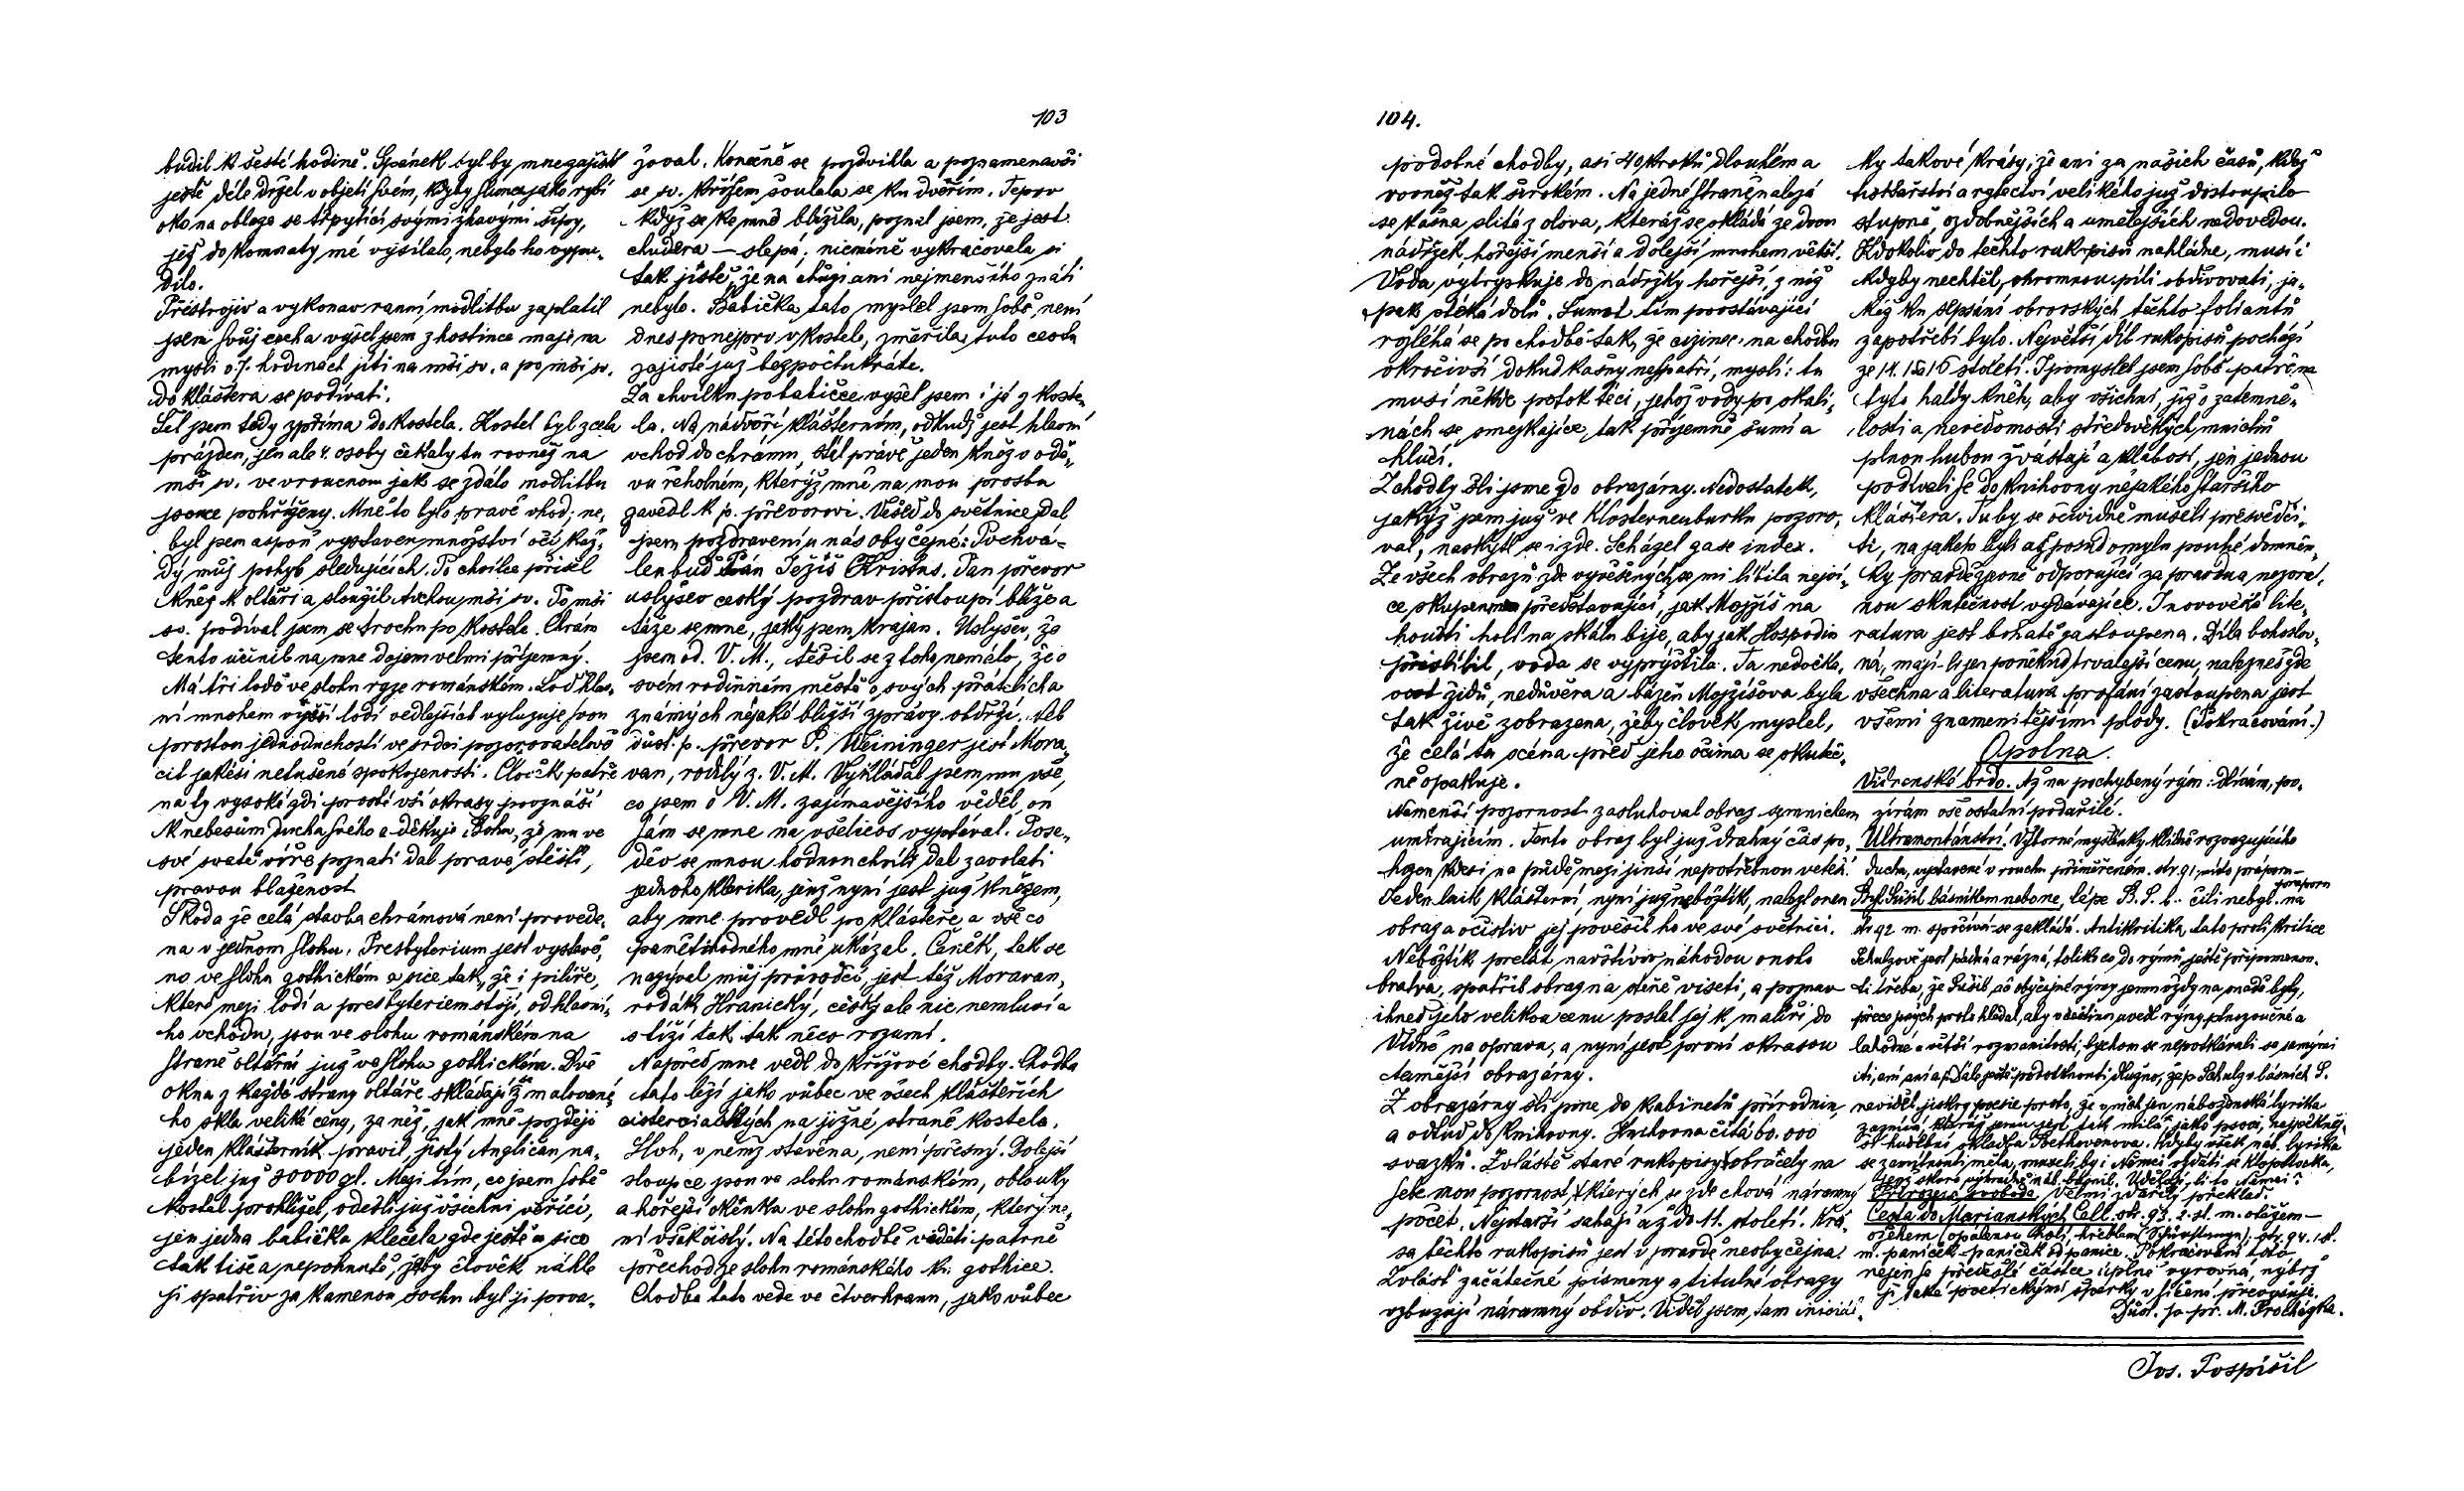 103
budil k šesté hodině. Spánek byl by mne zajisté
ještě déle držel v objetí svém, kdyby slunce jako rybí
oko na obloze se třpytící svými žhavými šípy,
jež do komnaty mé vysílalo, nebylo ho vypu-
dilo.
Přistrojiv a vykonav ranní modlitbu zaplatil
jsem svůj cech a vyšel jsem z hostince maje na
mysli o 7. hodinách jíti na mši sv. a po mši sv.
do kláštera se podívati.
Šel jsem tedy zpříma do kostela. Kostel byl zcela
prázden, jen ale 4. osoby čekaly tu rovněž na
mši sv. ve vroucnou jak se zdálo modlitbu
jsouce pohříženy. Mně to bylo pravě vhod; ne-
byl jsem aspoň vystaven množství očí kaž-
dý můj pohyb sledujících. Po chvilce přišel
kněz k oltáři a sloužil tichou mši sv. Po mši
sv. podíval jsem se trochu po kostele. Chrám
tento učinil na mne dojem velmi příjemný.
Má tři lodě ve slohu ryze románském. Loď hlav-
ní mnohem vyšší lodí vedlejších vyluzuje svou
prostou jednoduchostí ve srdci pozorovatelově
cit jakési netušené spokojenosti. Člověk patře
na ty vysoké zdi prosté vší okrasy povznáší
k nebesům ducha svého a děkuje Bohu, že mu ve
své svaté víře poznati dal pravé štěstí,
pravou blaženost.
Škoda že celá stavba chrámová není provede-
na v jednom slohu. Presbyterium jest vystavě-
no ve slohu gothickém a sice tak, že i pilíře,
které mezi lodí a presbyteriem stojí, od hlavní-
ho vchodu, jsou ve slohu románském na
straně oltářní již ve slohu gothickém. Dvě
okna z každé strany oltáře skládají se z malované-
ho skla veliké ceny, za něž, jak mně později
jeden klášterník pravil, jistý Angličan na-
bízel již 30000 zl. Mezi tím, co jsem sobě
kostel prohlížel, odešli již všichni věřící,
jen jedna babička klečela zde ještě a sice
tak tiše a nepohnutě, žeby člověk náhle
ji spatřiv za kamenou sochu byl ji pova-
žoval. Konečně se pozdvihla a poznamenavši
se sv. křížem šoulala se ku dveřím. Teprv
když se ke mně blížila, poznal jsem, že jest
chudera — slepá; nicméně vykračovala si
tak jistě, že na chůzi ani nejmensího znáti
nebylo. Babička tato myslel jsem sobě není
dnes ponejprv v kostele, změřila tuto cestu
zajisté již bezpočtukráte.
Za chvilku po babičce vyšel jsem i já z koste-
la. Na nádvoří klášterním, odkudž jest hlavní
vchod do chrámu, šel právě jeden kněz v odě-
vu řeholném, kterýž mně na mou prosbu
zavedl k p. převorovi. Všed do světnice dal
jsem pozdravení u nás obyčejné: Pochvá-
len buď Pán Ježíš Kristus. Pan převor
uslyšev český pozdrav přistoupí blíže a
táže se mne, jaký jsem krajan. Uslyšev, že
jsem od. V. M., těšil se z toho nemálo, že o
svém rodinném městě o svých přátelích a
známých nějaké bližší zprávy obdrží. Neb
důst. p. převor P. Weininger jest Mora-
van, rodilý z. V. M. Vykládal jsem mu vše,
co jsem o V. M. zajímavějšího věděl, on
sám se mne na všelicos vyptával. Pose-
děv se mnou hodnou chvíli dal zavolati
jednoho klerika, jenž nyní jest již knězem,
aby mne provedl po klášteře a vše co
pamětihodného mně ukázal. Čeněk, tak se
nazýval můj průvodčí, jest též Moravan,
rodák Hranický, česky ale nic nemluví a
stěží tak tak něco rozumí.
Napřed mne vedl do křížové chodby. Chodba
tato leží jako vůbec ve všech klášteřích
cisterciáckých na jižné straně kostela.
Sloh, v němž stavěna, není přesný. Dolejší
sloupce jsou ve slohu románském, oblouky
a hořejší okénka ve slohu gothickém, který ne-
ní však čistý. Na této chodbě viděti patrně
přechod ze slohu románského ku gothice.
Chodba tato vede ve čtverhranu, jako vůbec
104.
podobné chodby, asi 40 kroků dlouhém a
rovněž tak širokém. Na jedné straně nalezá
se kašna slitá z olova, kteráž se skládá ze dvou
nádržek, hořejší menší a dolejší mnohem větší.
Voda vytryskuje do nádržky hořejší, z níž
pak stéká dolů. Šumot tím povstávající
rozléhá se po chodbě tak, že cizinec na chodbu
vkročivší dokud kašny nespatří, myslí: tu
musí někde potok téci, jehož vody po skali-
nách se smejkajíce, tak příjemně šumí a
hlučí.
Z chodby šli jsme do obrazárny. Nedostatek,
jakýž jsem již ve Klosterneuburku pozoro-
val, naskytl se i zde. Scházel zase index.
Ze všech obrazů zde vyvěšených se mi líbila nejví-
ce skupenina představující, jak Mojžíš na
poušti holí na skálu bije, aby jak Hospodin
přislíbil, voda se vyprýštila. Ta nedočka-
vost židů, nedůvěra a bázeň Mojžíšova byla
tak živě zobrazena, žeby člověk myslel,
že celá ta scéna před jeho očima se skuteč-
ně opakuje.
Neméněší pozornost zasluhoval obraz s mnichem
umírajícím. Tento obraz byl již drahný čas po-
hozen kdesi na půdě mezi jinší nepotřebnou veteší.
Jeden laik klášterní, nyní již nebožtík, nalezl onen
obraz a očistiv jej pověsil ho ve své světnici.
Nebožtík prelát navštíviv náhodou onoho
bratra, spatřil obraz na stěně viseti, a poznav
ihned jeho velikou cenu poslal jej k malíři do
Vídně na opravu, a nyní jest první okrasou
tamější obrazárny.
Z obrazárny šli jsme do kabinetů přírodnin
a odtud do knihovny. Knihovna čítá 60.000
svazků. Zvláště staré rukopisy obrátily na
sebe mou pozornost, kterých se zde chová náramný
počet. Nejstarší sahají až do 11. století. Krá-
sa těchto rukopisů jest v pravdě neobyčejna!
Zvlášť začátečné písmeny a titulné obrazy
vzbuzují náramný obdiv. Viděl jsem tam iniciál-
ky takové krásy, že ani za našich časů, kdež
tiskařství a rytectví velikého již dostoupilo
stupně, ozdobnějších a umělejších nedovedou.
Kdokoliv do těchto rukopisů nahlédne, musí i
kdyby nechtěl, ohromnou píli obdivovati, ja-
kéž ku sepsání obrovských těchto foliantů
zapotřebí bylo. Největší díl rukopisů pochází
ze 14. 15 a 16 století. I pomyslel jsem sobě patře na
tyto haldy kněh, aby všichni, již o zatemně-
losti a nevědomosti středověkých mnichů
plnou hubou žvástají a klábosí, jen jednou
podívali se do knihovny nějakého staršího
kláštera. Tu by se očividně museli přesvědči-
ti, na jakém byli až posud omylu pouhé domněn-
ky pravdě zjevně odporující za pravdu nezvrat-
nou skutečnost vydávajíce. I novověká lite-
ratura jest bohatě zastoupena. Díla bohoslov-
ná, mají-li jen poněkud trvalejší cenu, nalezneš zde
všechna a literatura profání zastoupena jest
všemi znamenitějšími plody. (Pokračování.)
Opolna.
Vidrenské brdo. Až na pochybený rým: dívám, po-
zírám vše ostatní podařilé.
Ultramontánství. Výborné myšlénky klidně rozvazujícího
ducha, vystavené v rouchu přiměřeném. str. 91. místo prápor—
praporu
Byl Sušil básníkem nebo ne, lépe B. S. b. čili nebyl. na
str 92 m. spočívá-se zakládá. Antikritika tato proti kritice
Schulzově jest pádná a rázná, toliko co do rýmů ještě připomenou-
ti třeba, že Sušil, ač obyčejné rýmy jemu vždy na snadě byly,
přece jiných proto hledal, aby v češtinu uvedl rýmy plnozvučné a
lahodné a větší rozmanitosti, bychom se nepotkávali se samými
ti, ani ani a p. Dále ještě podotknouti slušno, že p. Schulz v básních S.
neviděl jiskry poesie proto, že v nich jen náboženská lyrika
zaznívá, kteráž jemu jest tak milá, jako psovi, nejpěkněj-
ší hudební skladba Beethovenova. Kdyby však náb. lyrika
se zavrhnouti měla, museli by i Němci vzdáti se Klopstocka,
jenž skoro výhradně náb. básnil. Udělají-li to Němci?
Přirozená svoboda. Velmi zdařilý překlad.
Cesta do Marianských Cell. str. 93. 2. sl. m. otěžem—
m. paníček—paniček od panice. Pokračování toto
nejen se předešlé částce úplně vyrovná, nýbrž
ji také poetickými šperky v líčení převyšuje.
Důst. p. pr. M. Procházka.
Jos. Pospíšil